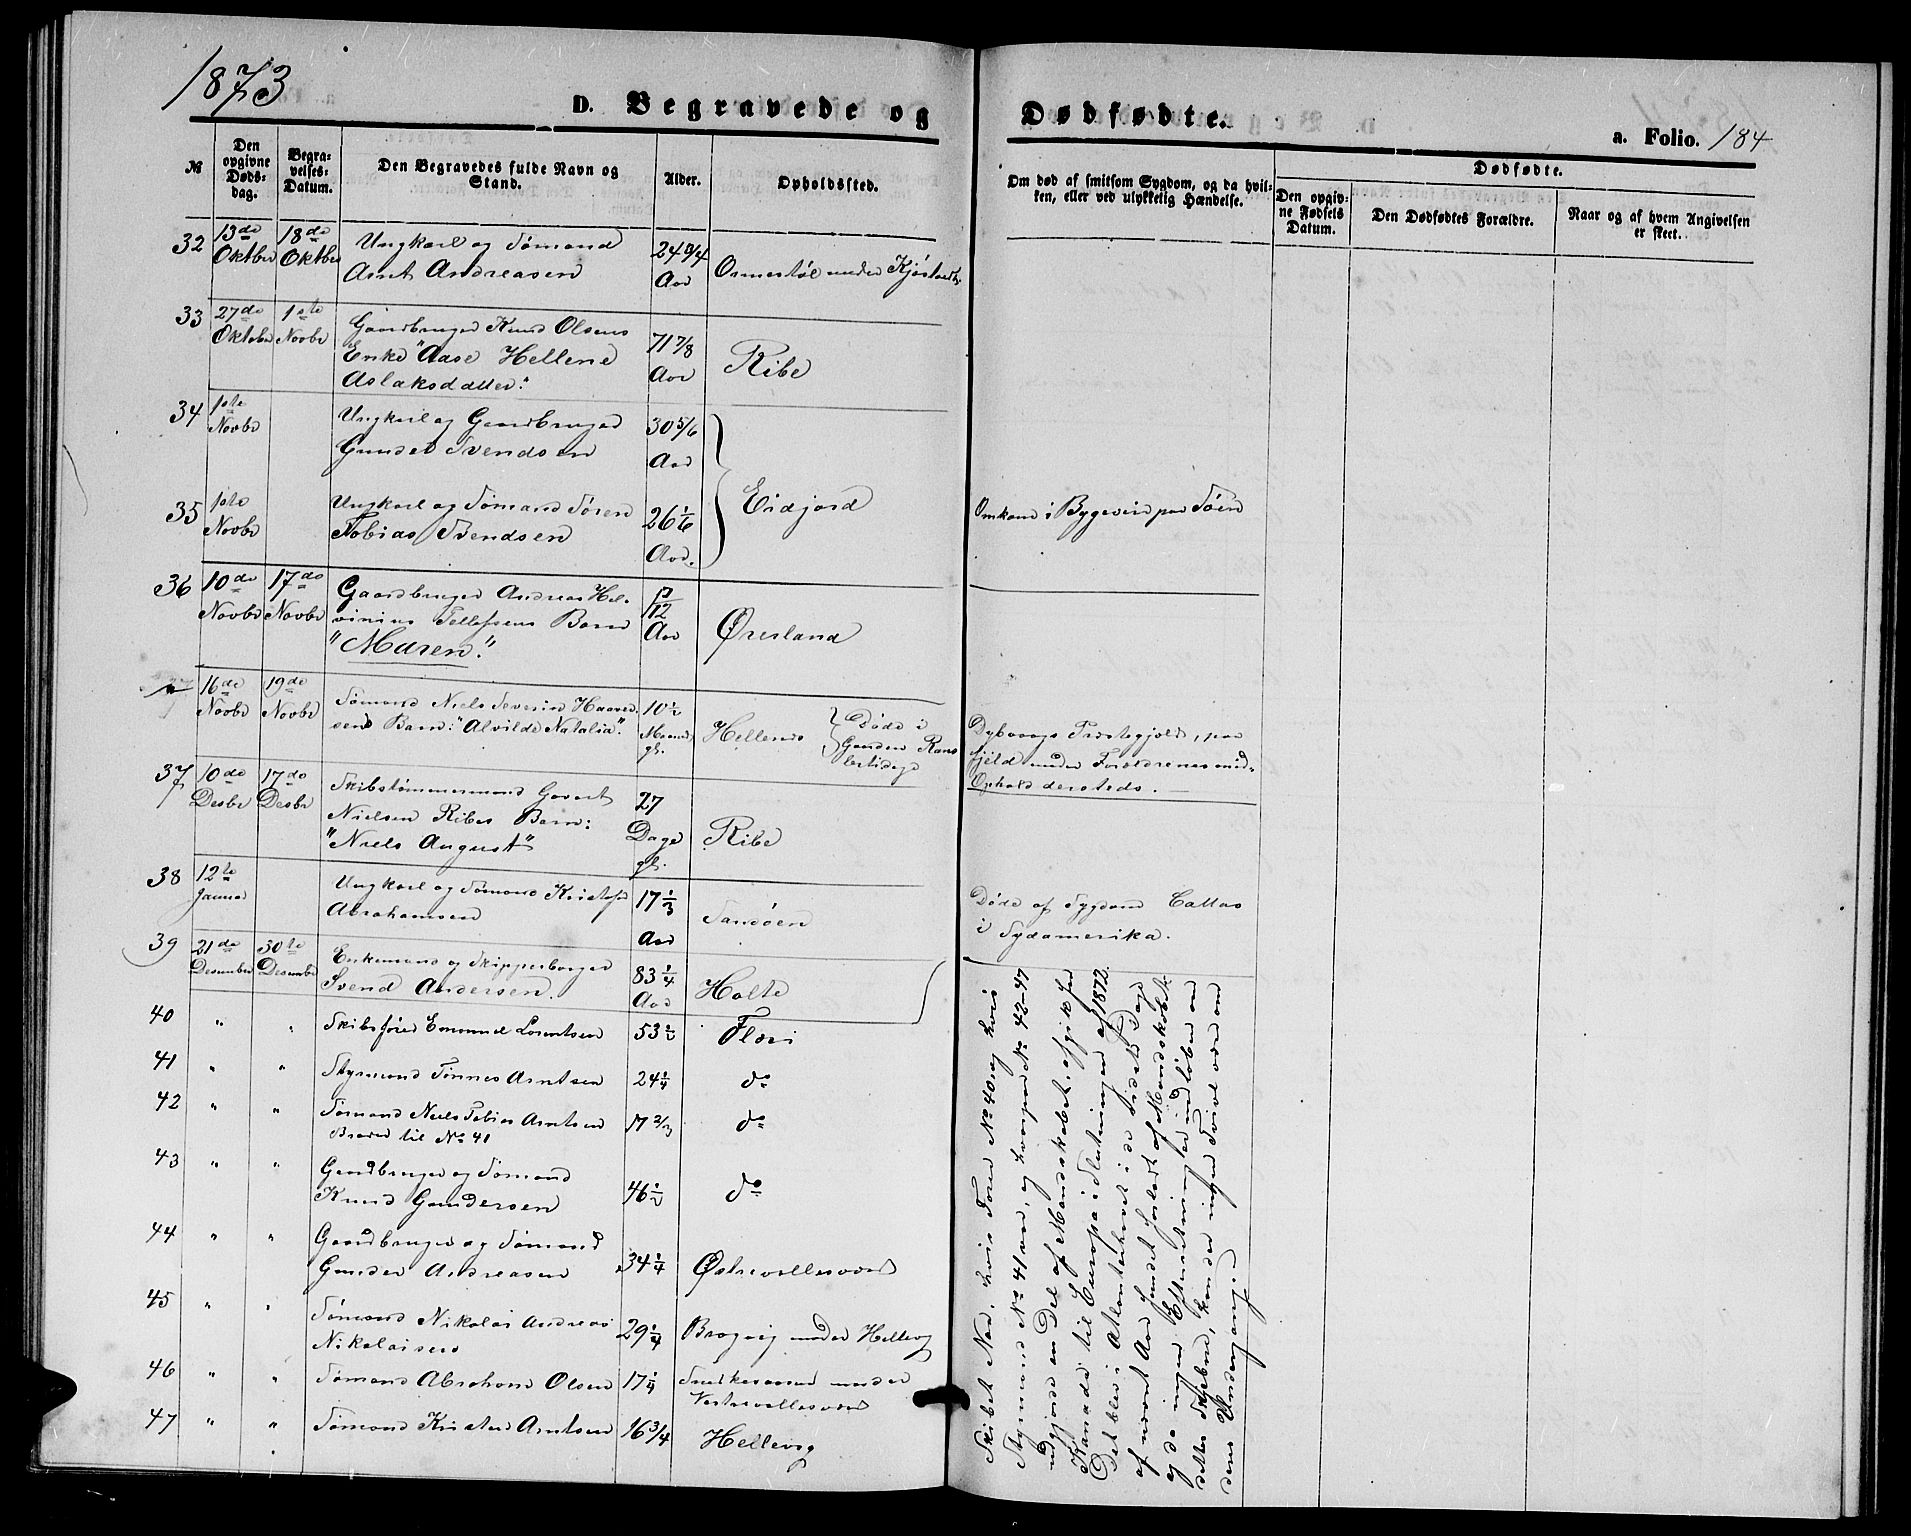 1873
D. Begravede og Dødfødte.
a. Folio. 184
№
Den opgivne Døds-dag.
Begra-velses-Datum.
Den Begravedes fulde Navn og Stand.
Alder.
Opholdssted.
Om død af smitsom Sygdom, og da hvil-
ken, eller ved ulykkelig Hændelse.
Dødfødte.
Den opgiv-ne Fødsels Datum.
Den Dødfødtes Forældre.
Naar og af hvem Angivelsen er skeet.
32 13de Oktbr 18de Oktbr Ungkarl og Sømand 24 3/4
Arnt Andreasen Aar Ormestøl under
33 27de Oktobr 1ste Novbr Gaardbruger Knud Olsens 71 7/8
Enke "Aase Hellene Aar Ribe
Aslaksdatter."
34 1ste Novbr Ungkarl og Gaardbruger 30 5/6
Gunder Svendsen Aar
Eidjord
35 1ste Novbr Ungkarl og Sømand Søren 26 1/6 Omkom i Bygeveir paa Søen
Tobias Svendsen Aar.
36 10de Novbr 17de Novbr Gaardbruger Andreas Hel-
vinius Tellefsens Barn 12 Aar Øresland
"Maren."
16de Novbr 19de Novbr Sømand Niels Severin Haavor- 10 1/2
sens Barn: "Alvilde Natalia." Maaned gl. Hellersø Døde i
Gaarden
Dybvaags Præstegjeld, paa
under Forældrenes mid-
Ophold dersteds.
37 10de Desbr 17de Desbr Skibstømmermand Govert 27
Nielsen Ribes Barn: Dage Ribe
"Niels August" gl.
38 12te Januar Ungkarl og Sømand Kristofer 17 1/3
Abrahamsen Aar Sandøen
Døde af Sygdom Callao
i Sydamerika.
39 21de Desember 30te Desember Enkemand og Skipperborger 83 1/4
Svend Andersen. Aar Holte
40 " " Skibsfører Emanuel Lorentsen 53 1/2 Fløri
41 " " Styrmand Tønnes Arntsen 24 1/4 do
42 " " Sømand Niels Tobias Arntsen 17 2/3 do
Broder til No 41
43 " " Gaardbruger og Sømand
Knud Gundersen 46 1/2 do
44 " " Gaardbruger og Sømand
Gunder Andreasen 34 1/4 Østrevallesværd
45 " " Sømand Nikolai Andreas
Nikolaisen 29 1/4 Brogvig under Hellevig
46 " " Sømand Abraham Olsen 17 1/4 under
Vestrevallesværd
47 " " Sømand Kristen Arntsen 16 3/4 Hellevig
Skibet hvis Fører No 40 og hvis
Styrmand No 41 var, og hvorpaa No 42-47
udgjorde en Del af Mandskabet, afgik fra
Kanada til Europa i Slutningen af 1872.
Det blev i Atlanterhavet i de sidste Dage
af nævnt Aar fundet forladt af Mandskabet
og da ingen Efterretning er indløben om
dettes Skjæbne, kan der ingen Tvivl være om
dens Undergang.